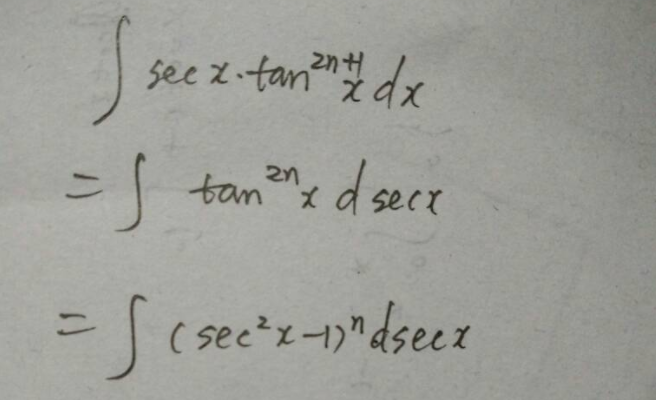 ∫ sec x · tan²ⁿ⁺¹ x dx
= ∫ tan²ⁿ x d sec x
= ∫ (sec² x − 1)ⁿ d sec x